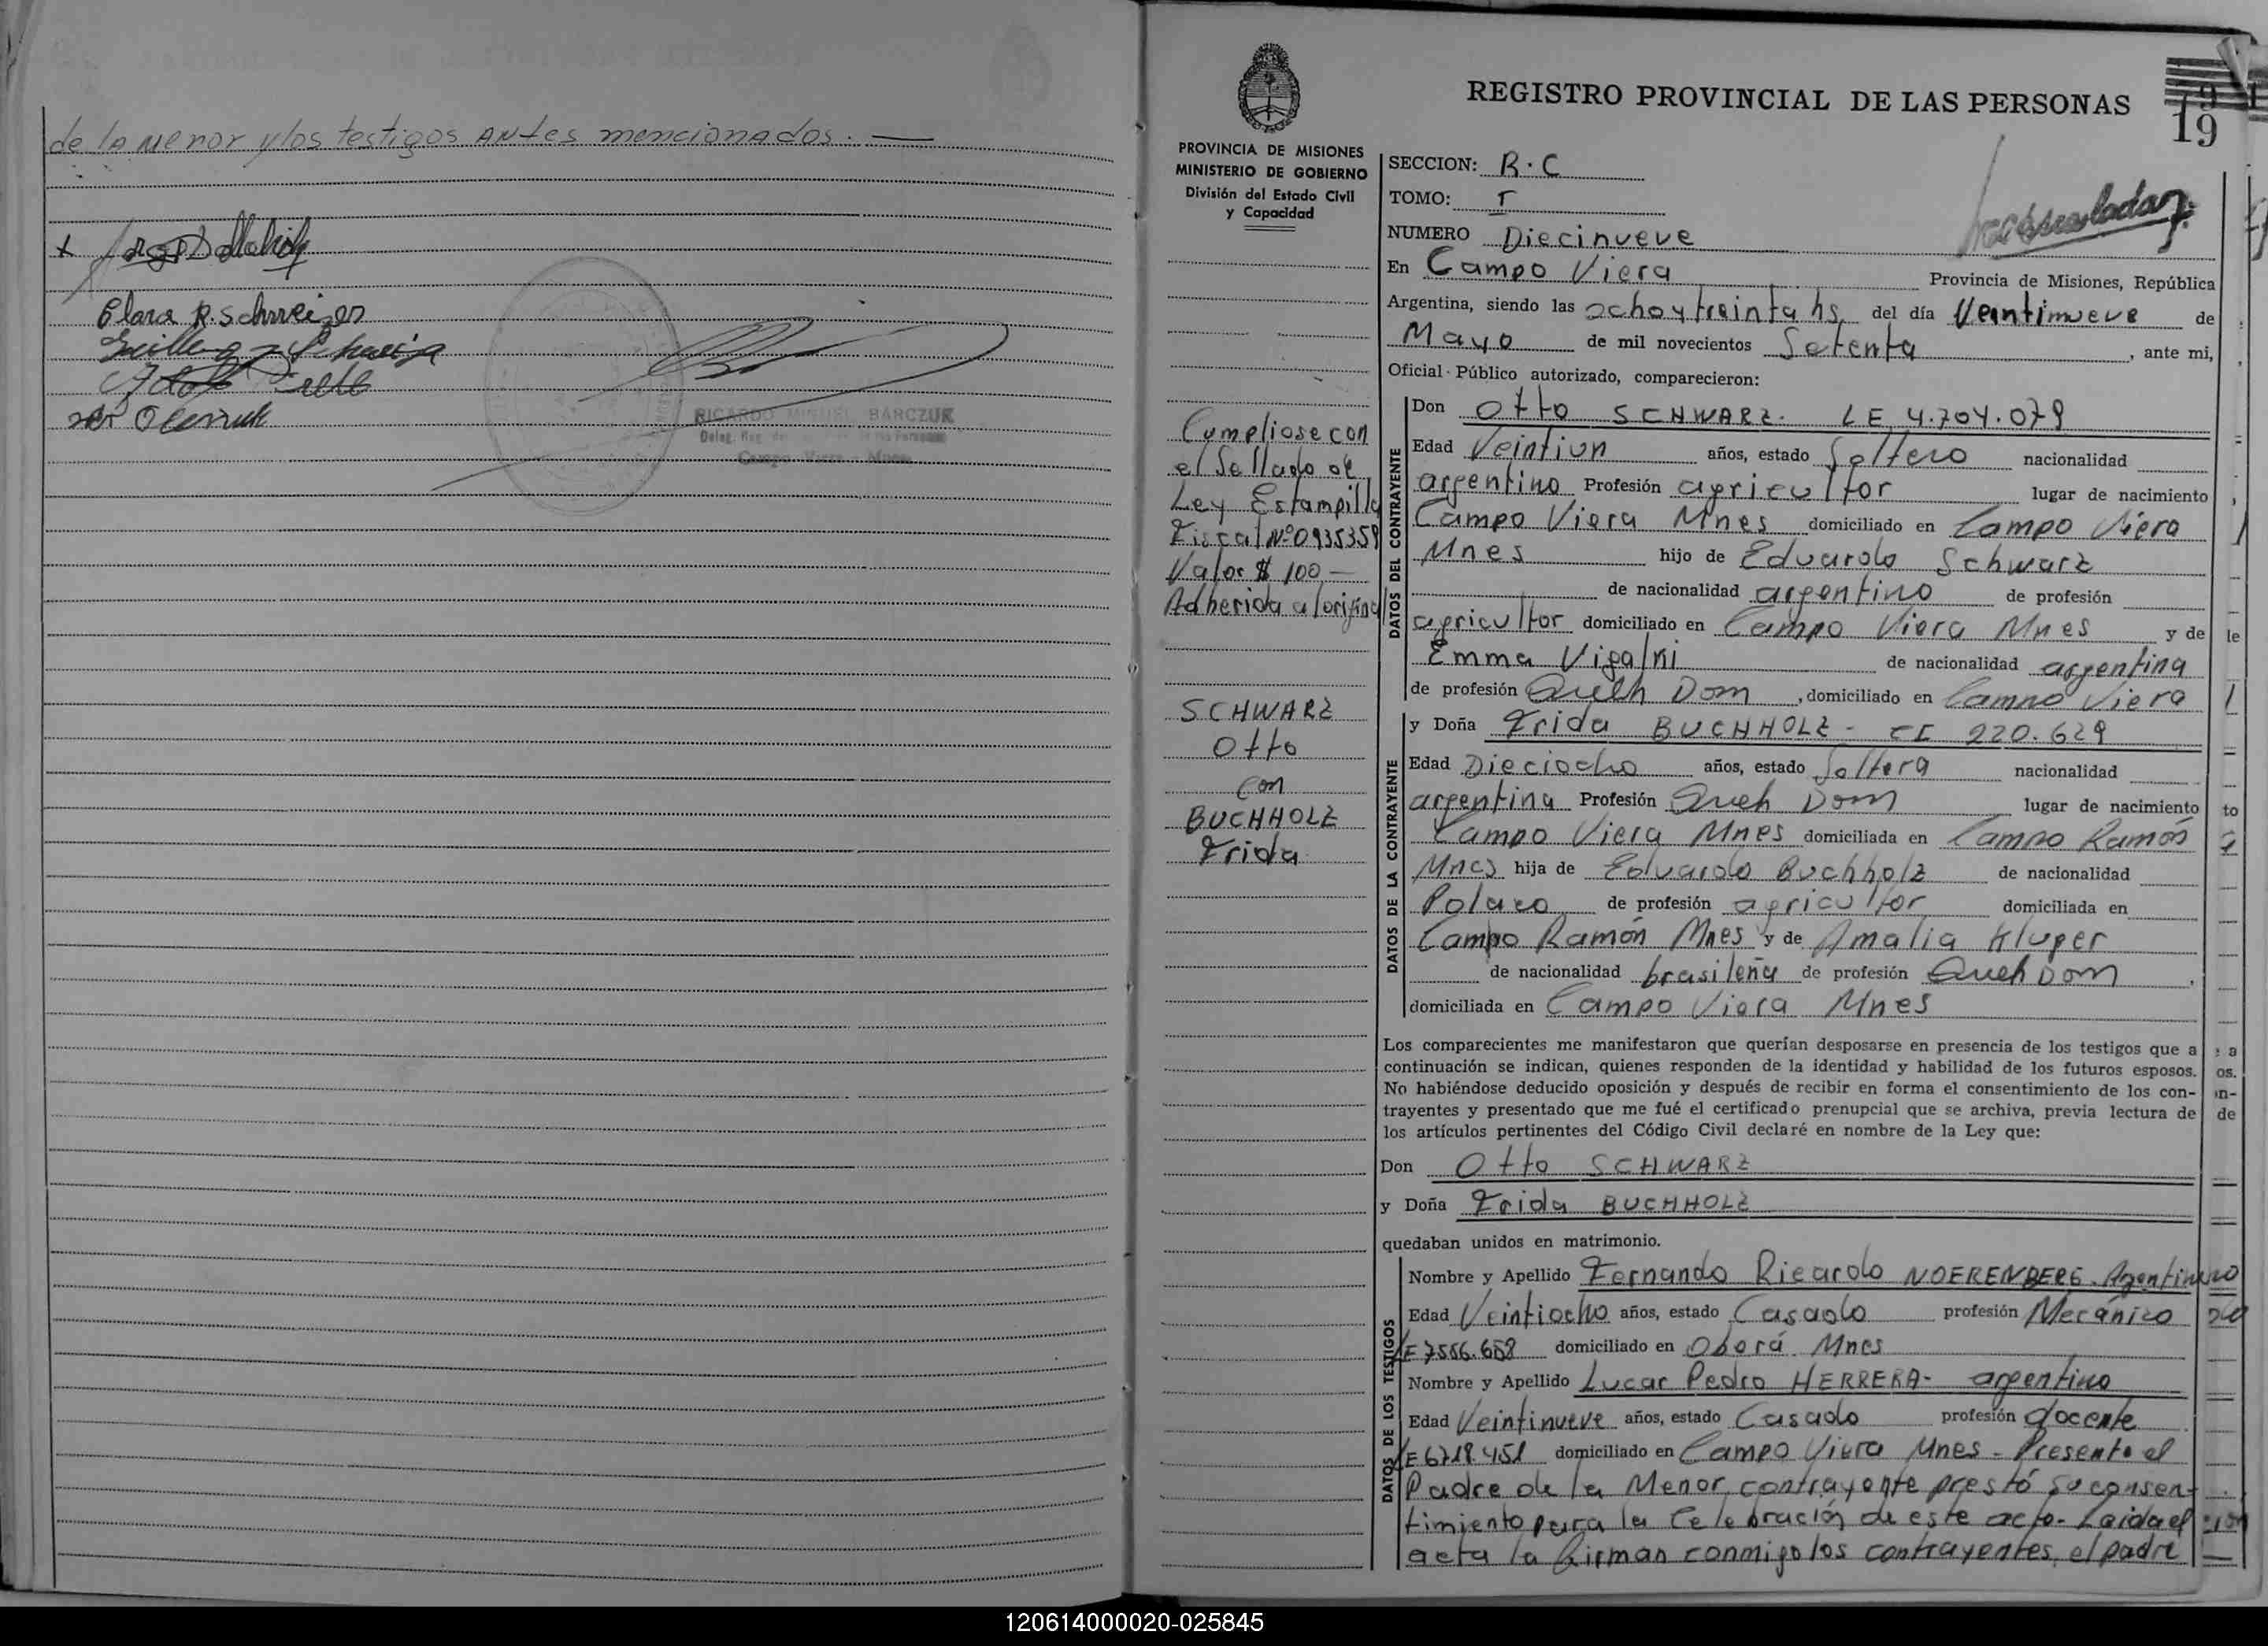 de la menor y los testigos antes mencionados.
Clara R. Schweizer
RICARDO MIGUEL BARCZUK
Campo Viera - Mnes
REGISTRO PROVINCIAL DE LAS PERSONAS
19
PROVINCIA DE MISIONES
MINISTERIO DE GOBIERNO
División del Estado Civil
y Capacidad
Cumpliose con
el Sellado de
Ley Estampilla
Fiscal Nº 0935359
Valor $ 100,—
Adherida al original
SCHWARZ
Otto
con
BUCHHOLZ
Frida
SECCION: R.C
TOMO: I
NUMERO Diecinueve
En Campo Viera Provincia de Misiones, República
Argentina, siendo las ocho y treinta hs. del día Veintinueve de
Mayo de mil novecientos Setenta, ante mi,
Oficial Público autorizado, comparecieron:
DATOS DEL CONTRAYENTE
Don Otto SCHWARZ. LE 4.704.079
Edad Veintiun años, estado Soltero nacionalidad
argentino Profesión agricultor lugar de nacimiento
Campo Viera Mnes domiciliado en Campo Viera
Mnes hijo de Eduardo Schwarz
de nacionalidad argentino de profesión
agricultor domiciliado en Campo Viera Mnes y de
Emma Vigalki de nacionalidad argentina
de profesión Queh Dom, domiciliado en Campo Viera
DATOS DE LA CONTRAYENTE
y Doña Frida BUCHHOLZ - CI 220.629
Edad Dieciocho años, estado Soltera nacionalidad
argentina Profesión Queh Dom lugar de nacimiento
Campo Viera Mnes domiciliada en Campo Ramón
Mnes hija de Eduardo Buchholz de nacionalidad
Polaco de profesión agricultor domiciliada en
Campo Ramón Mnes y de Amalia Kluper
de nacionalidad brasileña de profesión Queh Dom,
domiciliada en Campo Viera Mnes
Los comparecientes me manifestaron que querían desposarse en presencia de los testigos que a
continuación se indican, quienes responden de la identidad y habilidad de los futuros esposos.
No habiéndose deducido oposición y después de recibir en forma el consentimiento de los con-
trayentes y presentado que me fué el certificado prenupcial que se archiva, previa lectura de
los artículos pertinentes del Código Civil declaré en nombre de la Ley que:
Don Otto SCHWARZ
y Doña Frida BUCHHOLZ
quedaban unidos en matrimonio.
DATOS DE LOS TESTIGOS
Nombre y Apellido Fernando Ricardo NOERENBERG. Argentino
Edad Veintiocho años, estado Casado profesión Mecánico
LE 7556.658 domiciliado en Oberá. Mnes
Nombre y Apellido Lucar Pedro HERRERA - argentino
Edad Veintinueve años, estado Casado profesión docente
LE 6718.451 domiciliado en Campo Viera Mnes - Presente el
Padre de la Menor contrayente prestó su consen-
timiento para la Celebración de este acto. Laida el
acta la firman conmigo los contrayentes, el padre
120614000020-025845